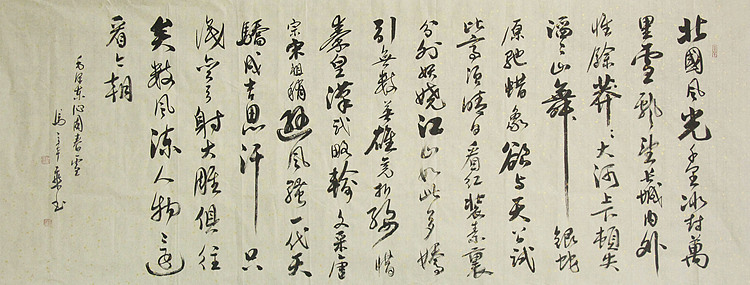 北國風光千里冰封萬
里雪飄望長城内外
惟餘莽々大河上下頓失
滔々山舞銀蛇
原馳蜡象欲与天公試
比高須晴日看红装素裹
分外妖娆江山如此多嬌
引無數英雄竞折腰惜
秦皇漢武略輸文采唐
宗宋祖稍遜風骚一代天
驕成吉思汗只
識弯弓射大雕俱往
矣數風流人物還
看今朝
毛泽东沁園春雪